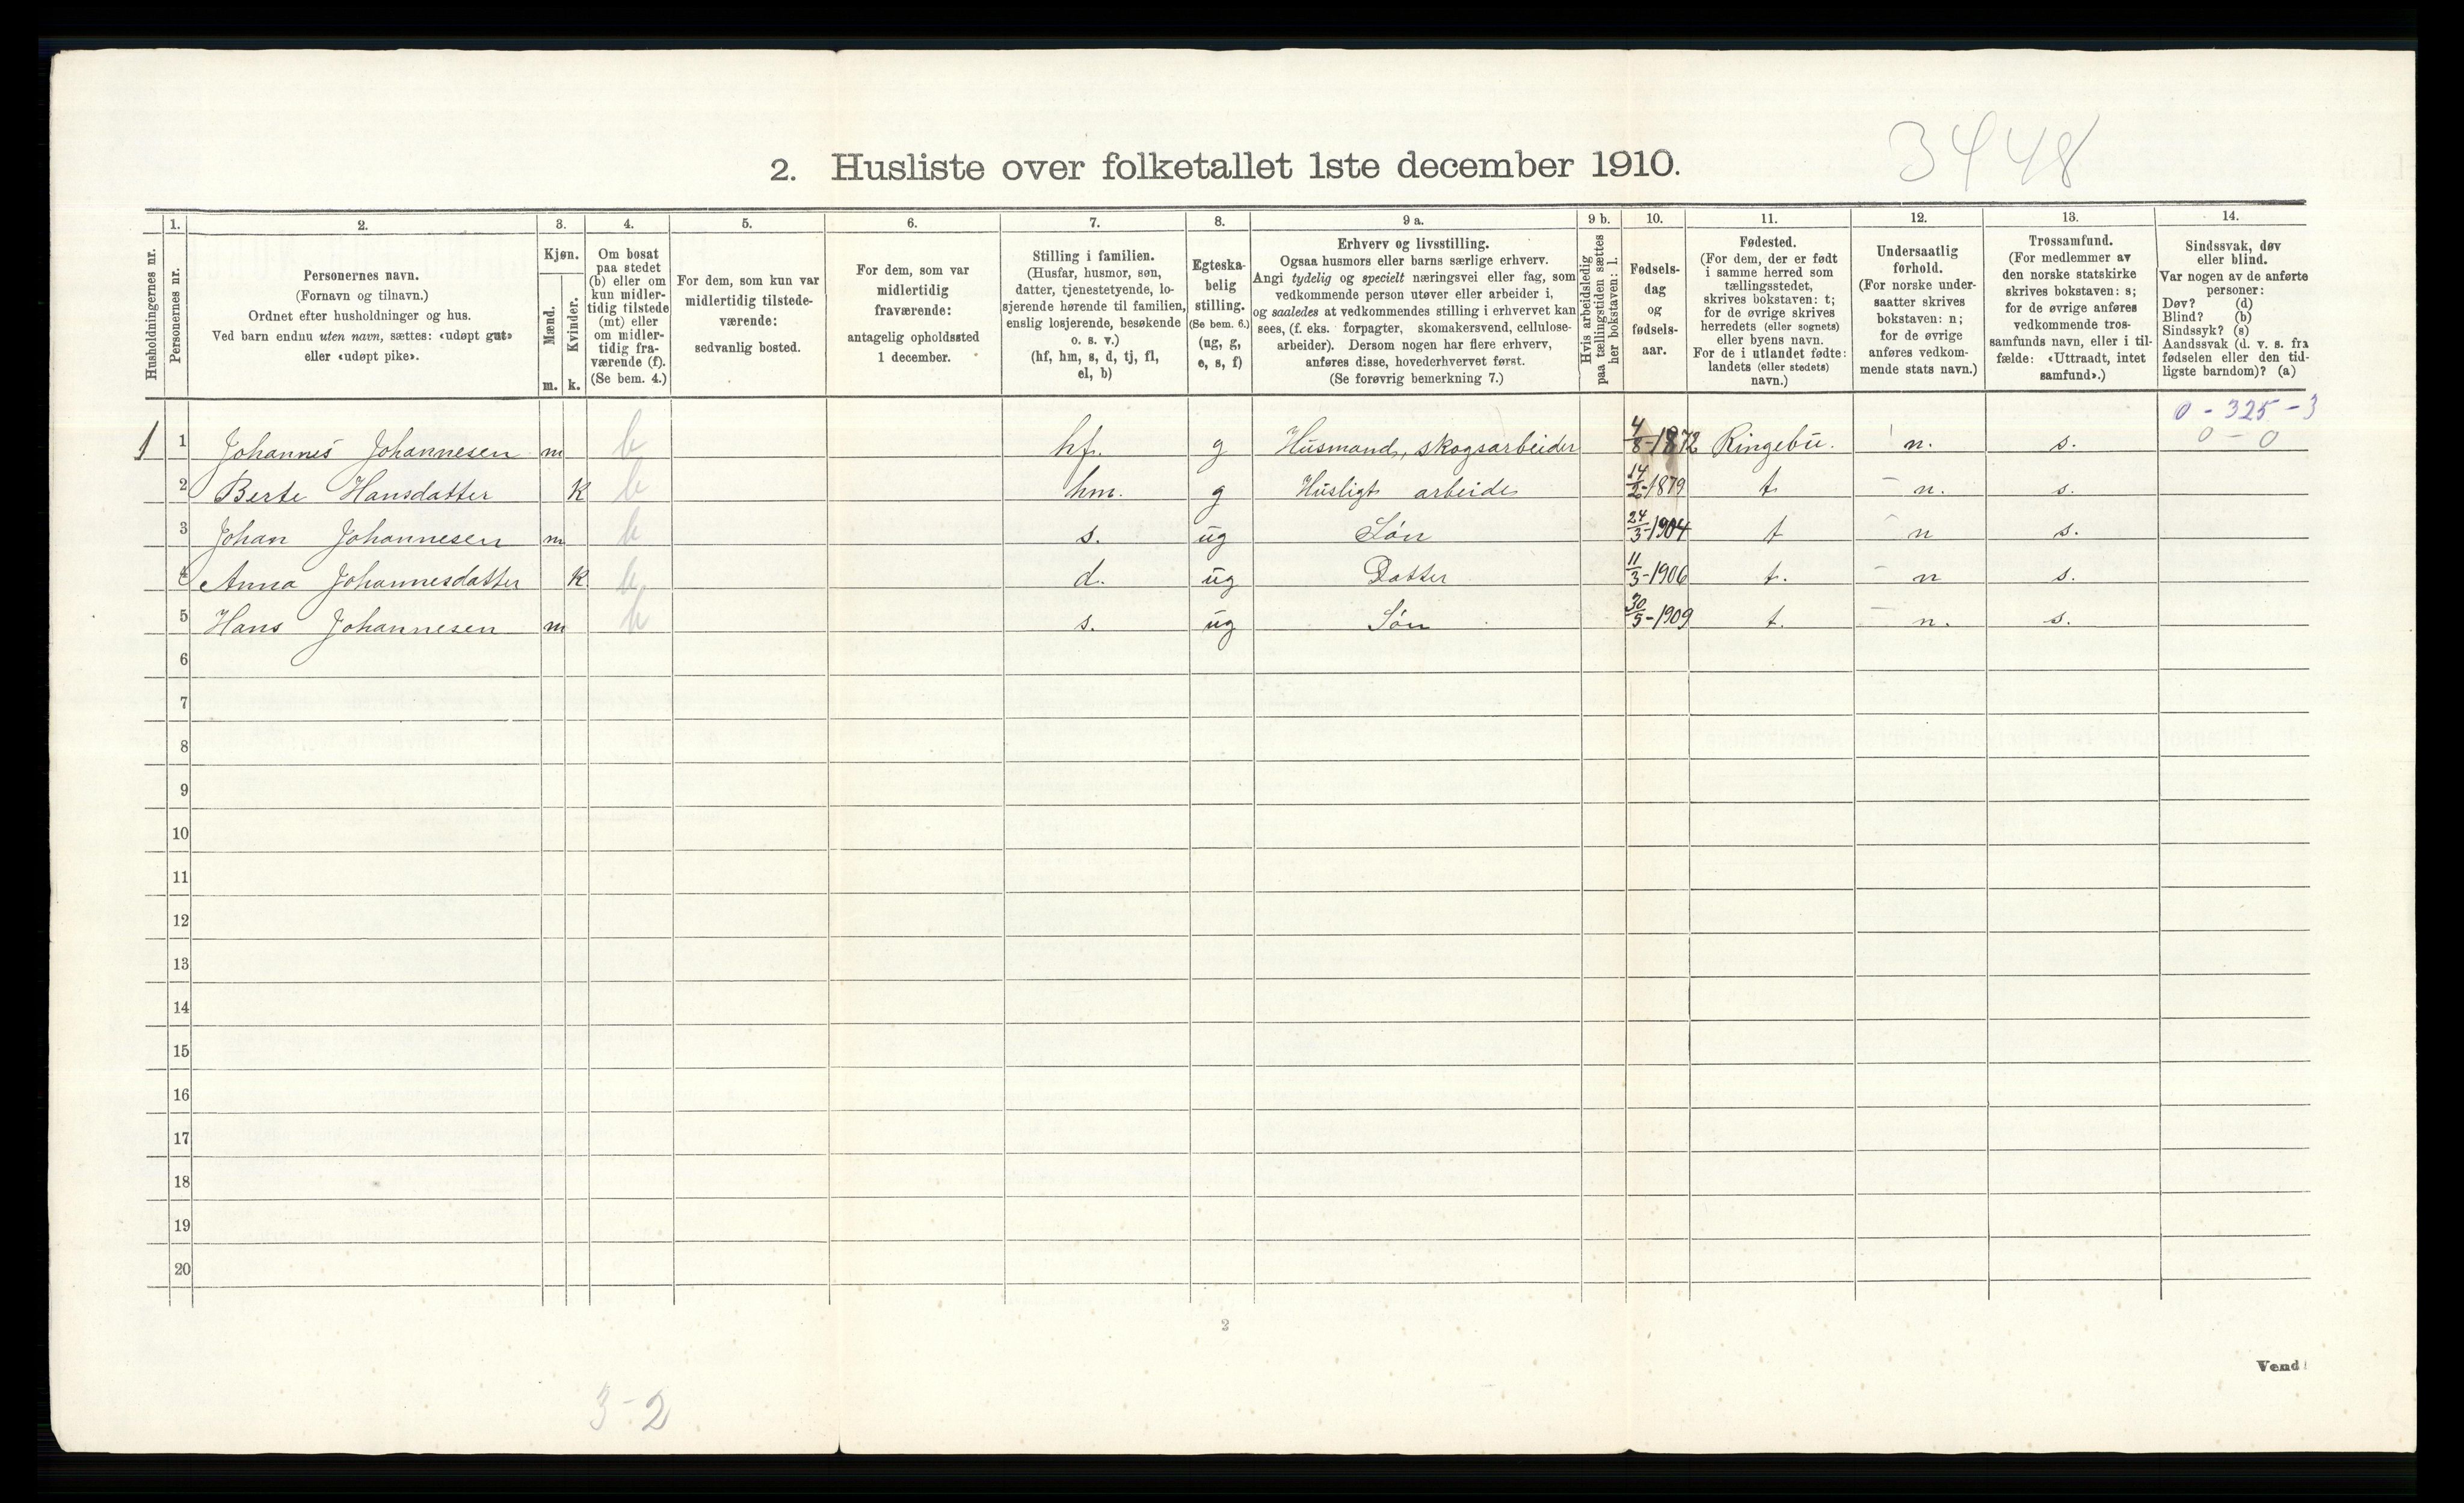 3448
2. Husliste over folketallet 1ste december 1910.
Husholdningernes nr.
1.
Personernes nr.
2.
Personernes navn.
(Fornavn og tilnavn.)
Ordnet efter husholdninger og hus.
Ved barn endnu uten navn, sættes: «udøpt gut»
eller «udøpt pike».
3.
Kjøn.
Mænd.
Kvinder.
m. k.
4.
Om bosat
paa stedet
(b) eller om
kun midler-
tidig tilstede
(mt) eller
om midler-
tidig fra-
værende (f).
(Se bem. 4.)
5.
For dem, som kun var
midlertidig tilstede-
værende:
sedvanlig bosted.
6.
For dem, som var
midlertidig
fraværende:
antagelig opholdssted
1 december.
7.
Stilling i familien.
(Husfar, husmor, søn,
datter, tjenestetyende, lo-
sjerende hørende til familien,
enslig losjerende, besøkende
o. s. v.)
(hf, hm, s, d, tj, fl,
el, b)
8.
Egteska-
belig
stilling.
(Se bem. 6.)
(ug, g,
e, s, f)
9 a.
Erhverv og livsstilling.
Ogsaa husmors eller barns særlige erhverv.
Angi tydelig og specielt næringsvei eller fag, som
vedkommende person utøver eller arbeider i,
og saaledes at vedkommendes stilling i erhvervet kan
sees, (f. eks. forpagter, skomakersvend, cellulose-
arbeider). Dersom nogen har flere erhverv,
anføres disse, hovederhvervet først.
(Se forøvrig bemerkning 7.)
9 b.
Hvis arbeidsledig
paa tællingstiden sættes
her bokstaven: l.
10.
Fødsels-
dag
og
fødsels-
aar.
11.
Fødested.
(For dem, der er født
i samme herred som
tællingsstedet,
skrives bokstaven: t;
for de øvrige skrives
herredets (eller sognets)
eller byens navn.
For de i utlandet fødte:
landets (eller stedets)
navn.)
12.
Undersaatlig
forhold.
(For norske under-
saatter skrives
bokstaven: n;
for de øvrige
anføres vedkom-
mende stats navn.)
13.
Trossamfund.
(For medlemmer av
den norske statskirke
skrives bokstaven: s;
for de øvrige anføres
vedkommende tros-
samfunds navn, eller i til-
fælde: «Uttraadt, intet
samfund».)
14.
Sindssvak, døv
eller blind.
Var nogen av de anførte
personer:
Døv? (d)
Blind? (b)
Sindssyk? (s)
Aandssvak (d. v. s. fra
fødselen eller den tid-
ligste barndom)? (a)
0 - 325 - 3
1 1 Johannes Johannesen m b hf. g Husmand, skogsarbeider 4/8-1872 Ringebu. n. s. 0 - 0
2 Berte Hansdatter k b hm. g Husligt arbeide 14/2-1879 t n. s.
3 Johan Johannesen m b s. ug Søn 24/3-1904 t n s.
4 Anna Johannesdatter k b d. ug Datter 11/3-1906 t. n s.
5 Hans Johannesen m b s. ug Søn 30/5-1909 t. n. s.
6
7
8
9
10
11
12
13
14
15
16
17
18
19
20
2
Vend!
3-2